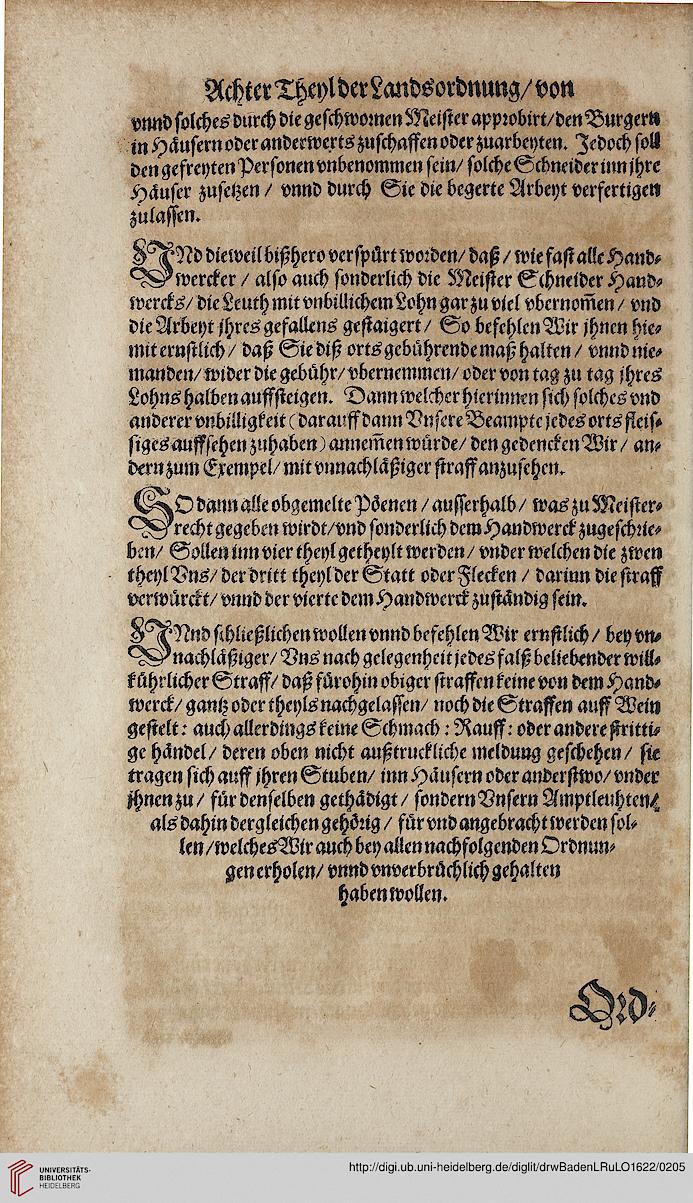 Achter Theyl der Landsordnung/ von
vnnd solches durch die geschwornen Meister approbirt/ den Burgern
in Häusern oder anderwerts zuschaffen oder zuarbeyten. Jedoch soll
den gefreyten Personen vnbenommen sein/ solche Schneider inn jhre
Häuser zusetzen / vnnd durch Sie die begerte Arbeyt verfertigen
zulassen.
VNd dieweil bißhero verspürt worden/ daß / wie fast alle Hand-
wercker / also auch sonderlich die Meister Schneider Hand-
wercks/ die Leuth mit vnbillichem Lohn gar zu viel vbernom̃en / vnd
die Arbeyt jhres gefallens gestaigert / So befehlen Wir jhnen hie-
mit ernstlich / daß Sie diß orts gebührende maß halten / vnnd nie-
manden/ wider die gebühr/ vbernemmen/ oder von tag zu tag jhres
Lohns halben auffsteigen. Dann welcher hierinnen sich solches vnd
anderer vnbilligkeit (darauff dann Vnsere Beampte jedes orts fleis-
siges auffsehen zuhaben) annem̃en würde/ den gedencken Wir / an-
dern zum Exempel/ mit vnnachläßiger straff anzusehen.
SO dann alle obgemelte Pöenen / ausserhalb / was zu Meister-
recht gegeben wirdt/ vnd sonderlich dem Handwerck zugeschrie-
ben/ Sollen inn vier theyl getheylt werden / vnder welchen die zwen
theyl Vns/ der dritt theyl der Statt oder Flecken / darinn die straff
verwürckt/ vnnd der vierte dem Handwerck zuständig sein.
VNnd schließlichen wollen vnnd befehlen Wir ernstlich / bey vn-
nachläßiger/ Vns nach gelegenheit jedes falß beliebender will-
kührlicher Straff/ daß fürohin obiger straffen keine von dem Hand-
werck/ gantz oder theyls nachgelassen/ noch die Straffen auff Wein
gestelt: auch allerdings keine Schmach: Rauff: oder andere stritti-
ge händel/ deren oben nicht außtruckliche meldung geschehen / sie
tragen sich auff jhren Stuben/ inn Häusern oder anderstwo/ vnder
jhnen zu / für denselben gethädigt / sondern Vnsern Amptleuhten/
als dahin dergleichen gehörig / für vnd angebracht werden sol-
len / welches Wir auch bey allen nachfolgenden Ordnun-
gen erholen/ vnnd vnverbrüchlich gehalten
haben wollen.
Ord-
UNIVERSITÄTS-
BIBLIOTHEK
HEIDELBERG
http://digi.ub.uni-heidelberg.de/diglit/drwBadenLRuLO1622/0205